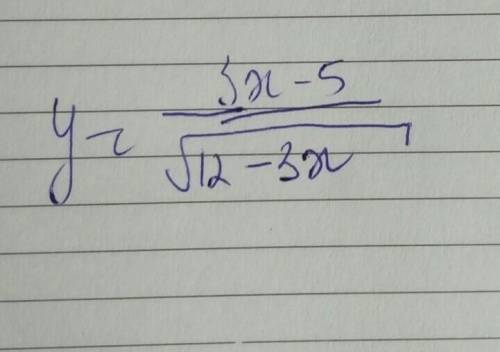 y = (3x - 5) / √(12 - 3x)